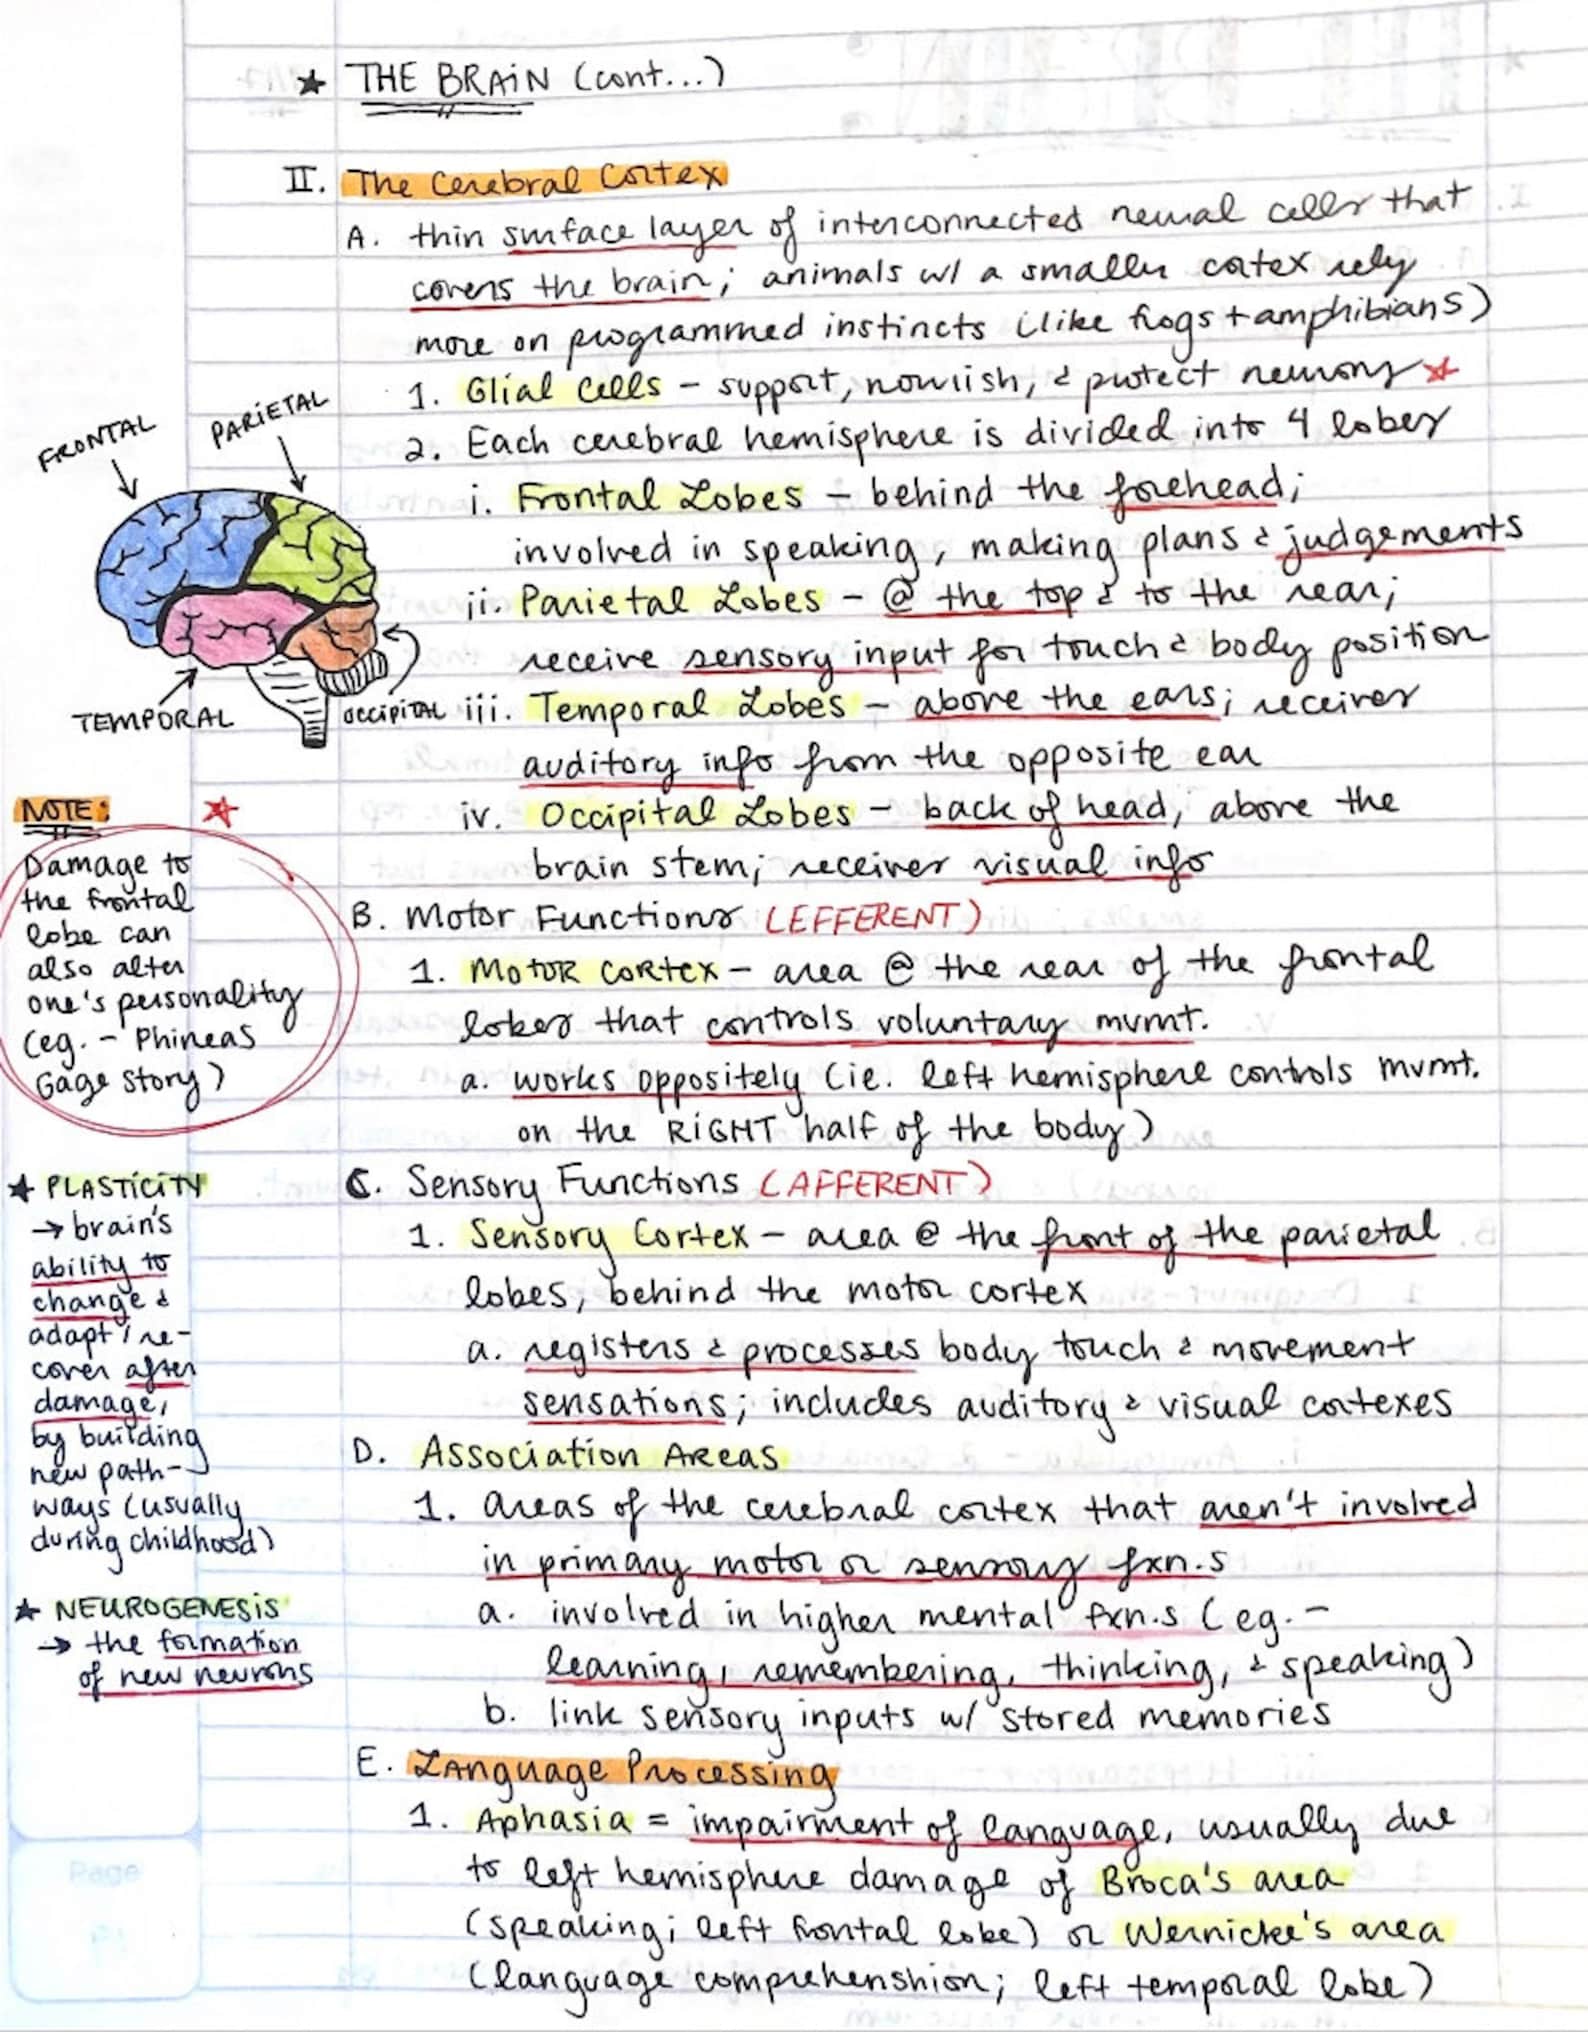 ★ THE BRAIN (cont...)
II. The Cerebral Cortex
A. thin surface layer of interconnected neural cells that
covers the brain; animals w/ a smaller cortex rely
more on programmed instincts (like frogs + amphibians)
1. Glial Cells – support, nourish, & protect neurons ★
2. Each cerebral hemisphere is divided into 4 lobes
i. Frontal Lobes – behind the forehead;
involved in speaking, making plans & judgements
ii. Parietal Lobes – @ the top & to the rear;
receive sensory input for touch & body position
iii. Temporal Lobes – above the ears; receives
auditory info from the opposite ear
iv. Occipital Lobes – back of head, above the
brain stem; receives visual info
B. Motor Functions (EFFERENT)
1. Motor Cortex – area @ the rear of the frontal
lobes that controls voluntary mvmt.
a. works oppositely (ie. left hemisphere controls mvmt.
on the RIGHT half of the body)
C. Sensory Functions (AFFERENT)
1. Sensory Cortex – area @ the front of the parietal
lobes, behind the motor cortex
a. registers & processes body touch & movement
sensations; includes auditory & visual cortexes
D. Association Areas
1. areas of the cerebral cortex that aren't involved
in primary motor or sensory fxn.s
a. involved in higher mental fxn.s (eg. –
learning, remembering, thinking, & speaking)
b. link sensory inputs w/ stored memories
E. Language Processing
1. Aphasia = impairment of language, usually due
to left hemisphere damage of Broca's area
(speaking; left frontal lobe) or Wernicke's area
(language comprehenshion; left temporal lobe)
FRONTAL
PARIETAL
TEMPORAL
OCCIPITAL
NOTE: ★
Damage to
the frontal
lobe can
also alter
one's personality
(eg. – Phineas
Gage story)
★ PLASTICITY
→ brain's
ability to
change &
adapt / re-
cover after
damage,
by building
new path-
ways (usually
during childhood)
★ NEUROGENESIS
→ the formation
of new neurons
Page